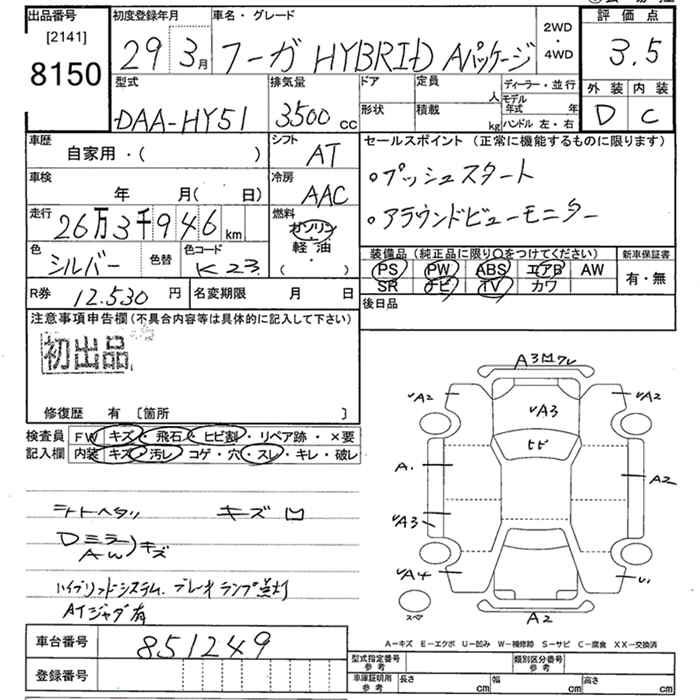 出品番号
[2141]
8150
初度登録年月
29 3月
車名・グレード
フーガ HYBRID Aパッケージ
2WD
・
4WD
評価点
3.5
外装 内装
D C
型式
DAA-HY51
排気量
3500 cc
ドア
定員
人
形状
積載
kg
ディーラー・並行
モデル年式 年
ハンドル 左・右
車歴
自家用・( )
シフト
AT
セールスポイント (正常に機能するものに限ります)
。プッシュスタート
。アラウンドビューモニター
車検
年 月( 日)
冷房
AAC
走行
26万3千946 km
燃料
ガソリン
・
軽油
( )
色
シルバー
色替
色コード
K23
装備品 (純正品に限り○をつけてください)
PS PW ABS エアB AW
SR ナビ TV カワ
新車保証書
有・無
R券 12,530 円
名変期限 月 日
後日品
注意事項申告欄 (不具合内容等は具体的に記入して下さい)
初出品
修復歴 有 [箇所 ]
検査員 FW キズ・飛石・ヒビ割・リペア跡・×要
記入欄 内装 キズ・汚レ・コゲ・穴・スレ・キレ・破レ
シートヘタリ キズ凹
Dミラー
AW )キズ
ハイブリッドシステム、ブレーキランプ点灯
A1ジャダ有
A3凹ワレ
A2
A2
A3
ヒビ
A
A2
A3
A4
U1
スペア
A2
A－キズ E－エクボ U－凹み W－補修跡 S－サビ C－腐食 XX－交換済
車台番号
851249
登録番号
型式指定番号
参考
類別区分番号
参考
車庫証明用
参考
長さ cm
幅 cm
高さ cm